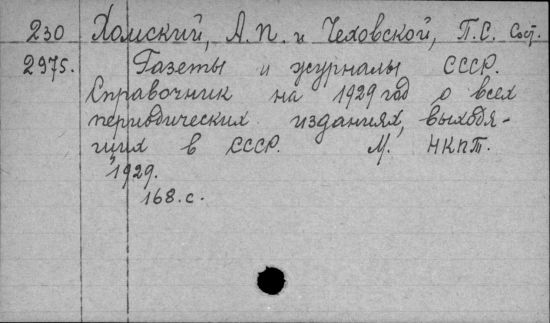 230 Хомский, А.П. и Чеховской, П.С. Сост.
2975. Газеты и журналы СССР.
Справочник на 1929 год о всех
периодических изданиях, выходя-
щих в СССР. М. НКПТ.
1929.
168.с.